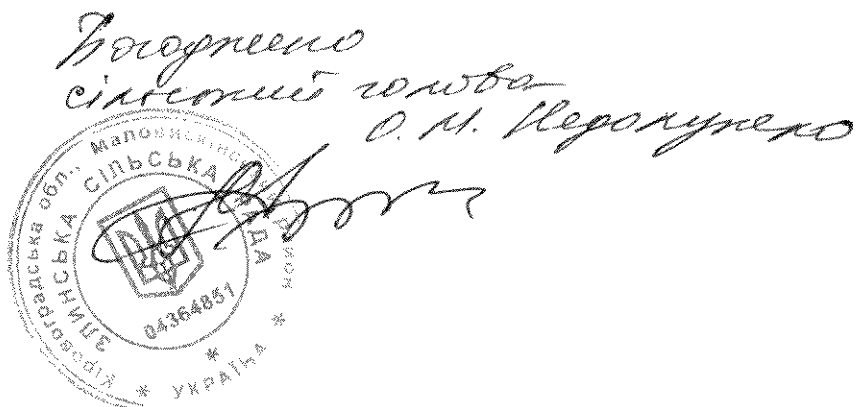 Погоджено
сільський голова
О. М.
Кіровоградська обл., Маловисківський район
ЗЛИНСЬКА СІЛЬСЬКА РАДА
04364851
* УКРАЇНА *